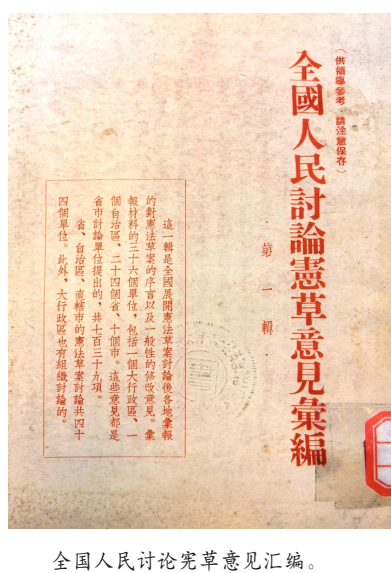 （供領導參考·請注意保存）
全國人民討論憲草意見彙編
·第一輯·
這一輯是全國展開憲法草案討論後各地彙報
的對憲法草案的序言以及一般性的修改意見。彙
報材料的三十六個單位，包括一個大行政區、一
個自治區、二十四個省、十個市。這些意見都是
省市討論單位提出的，共七百三十九項。
省、自治區、直轄市的憲法草案討論共四十
四個單位。此外，大行政區也有組織討論的。
全国人民讨论宪草意见汇编。